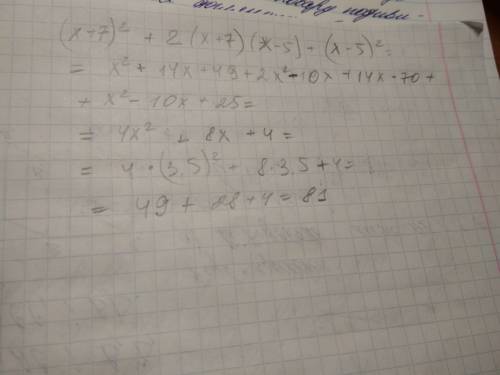 (x+7)² + 2(x+7)(x-5)+(x-5)²=
= x²+14x+49+2x²-10x+14x-70+
+ x²-10x+25=
= 4x² + 8x +4=
= 4·(3,5)² + 8·3,5+4=
= 49 + 28+4=81